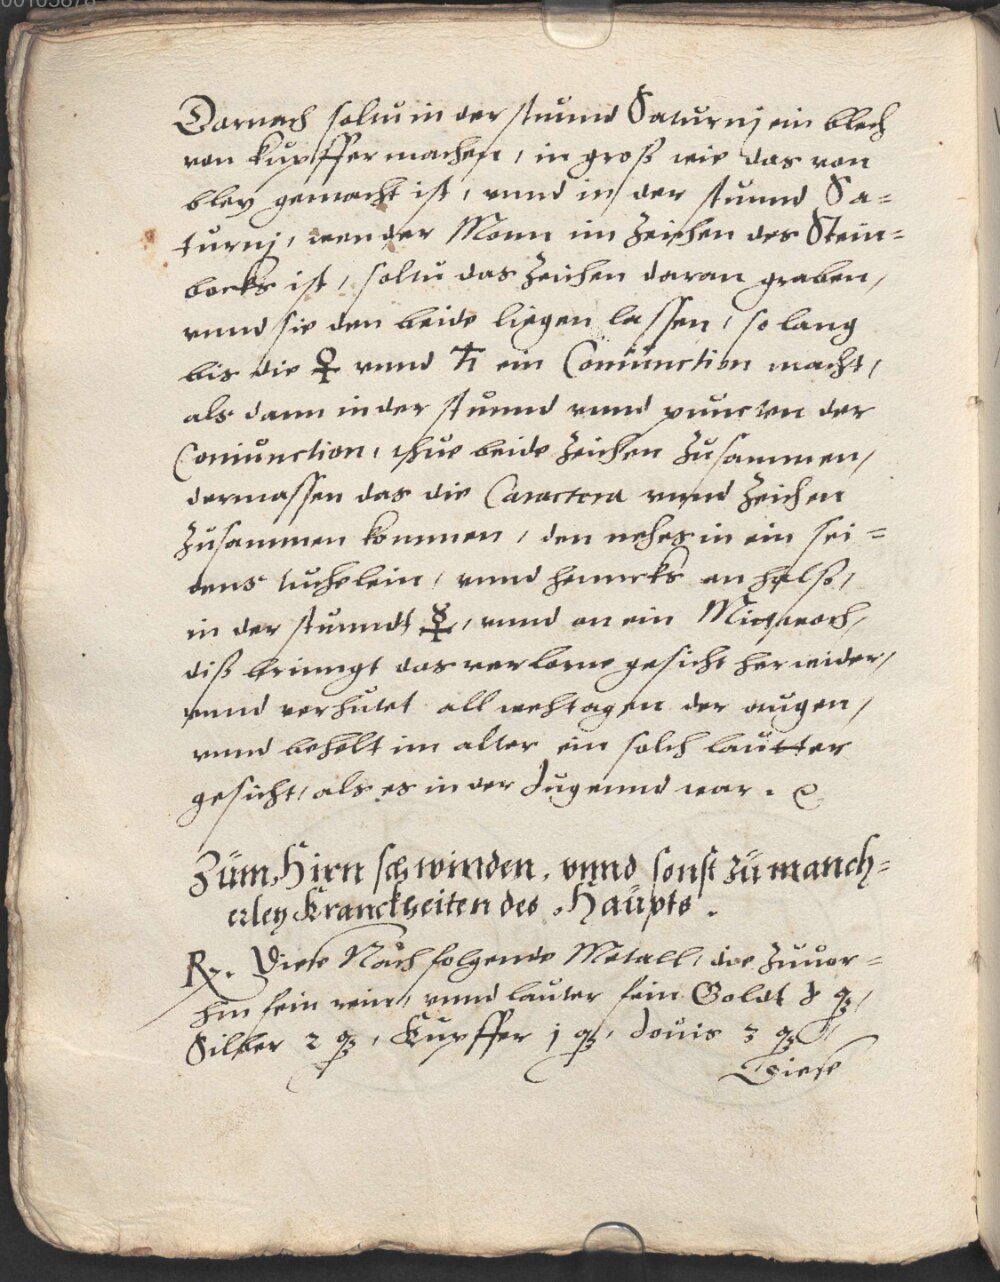 00105876
Darnach soltu in der stunnd Saturnj ein blech
von kupffer machen, in groß wie das von
bley gemacht ist, vnnd in der stunnd Sa=
turnj, wen der Monn im Zeichen des Stein=
bocks ist, soltu das Zeichen daran graben,
vnnd sie den beide liegen lassen, so lang
bis die ♀ vnnd ♄ ein Coniunction macht,
als dann in der stunnd vnnd puncten der
Coniunction, thue beide Zeichen Zusammen,
dermassen das die Caractera vnnd Zeichen
Zusammen kommen, den nehes in ein sei=
dens tuchelein, vnnd henncks an halß,
in der stunndt ☿, vnnd an ein Mitwoch,
diß brinngt das verlorne gesicht herwider,
vnnd verhutet all wehtagen der augen,
vnnd behelt im alter ein solch lautter
gesicht, als es in der Jugennd war.
Zum Hirn schwinden, vnnd sonst zu manch=
erley Kranckheiten des Haupts.
Rz. Diese Nachfolgende Metall, die Zuuor=
hin fein rein, vnnd lauter sein Goldt
Silber 2 , Kupffer 1 , Jouis 3
Diese